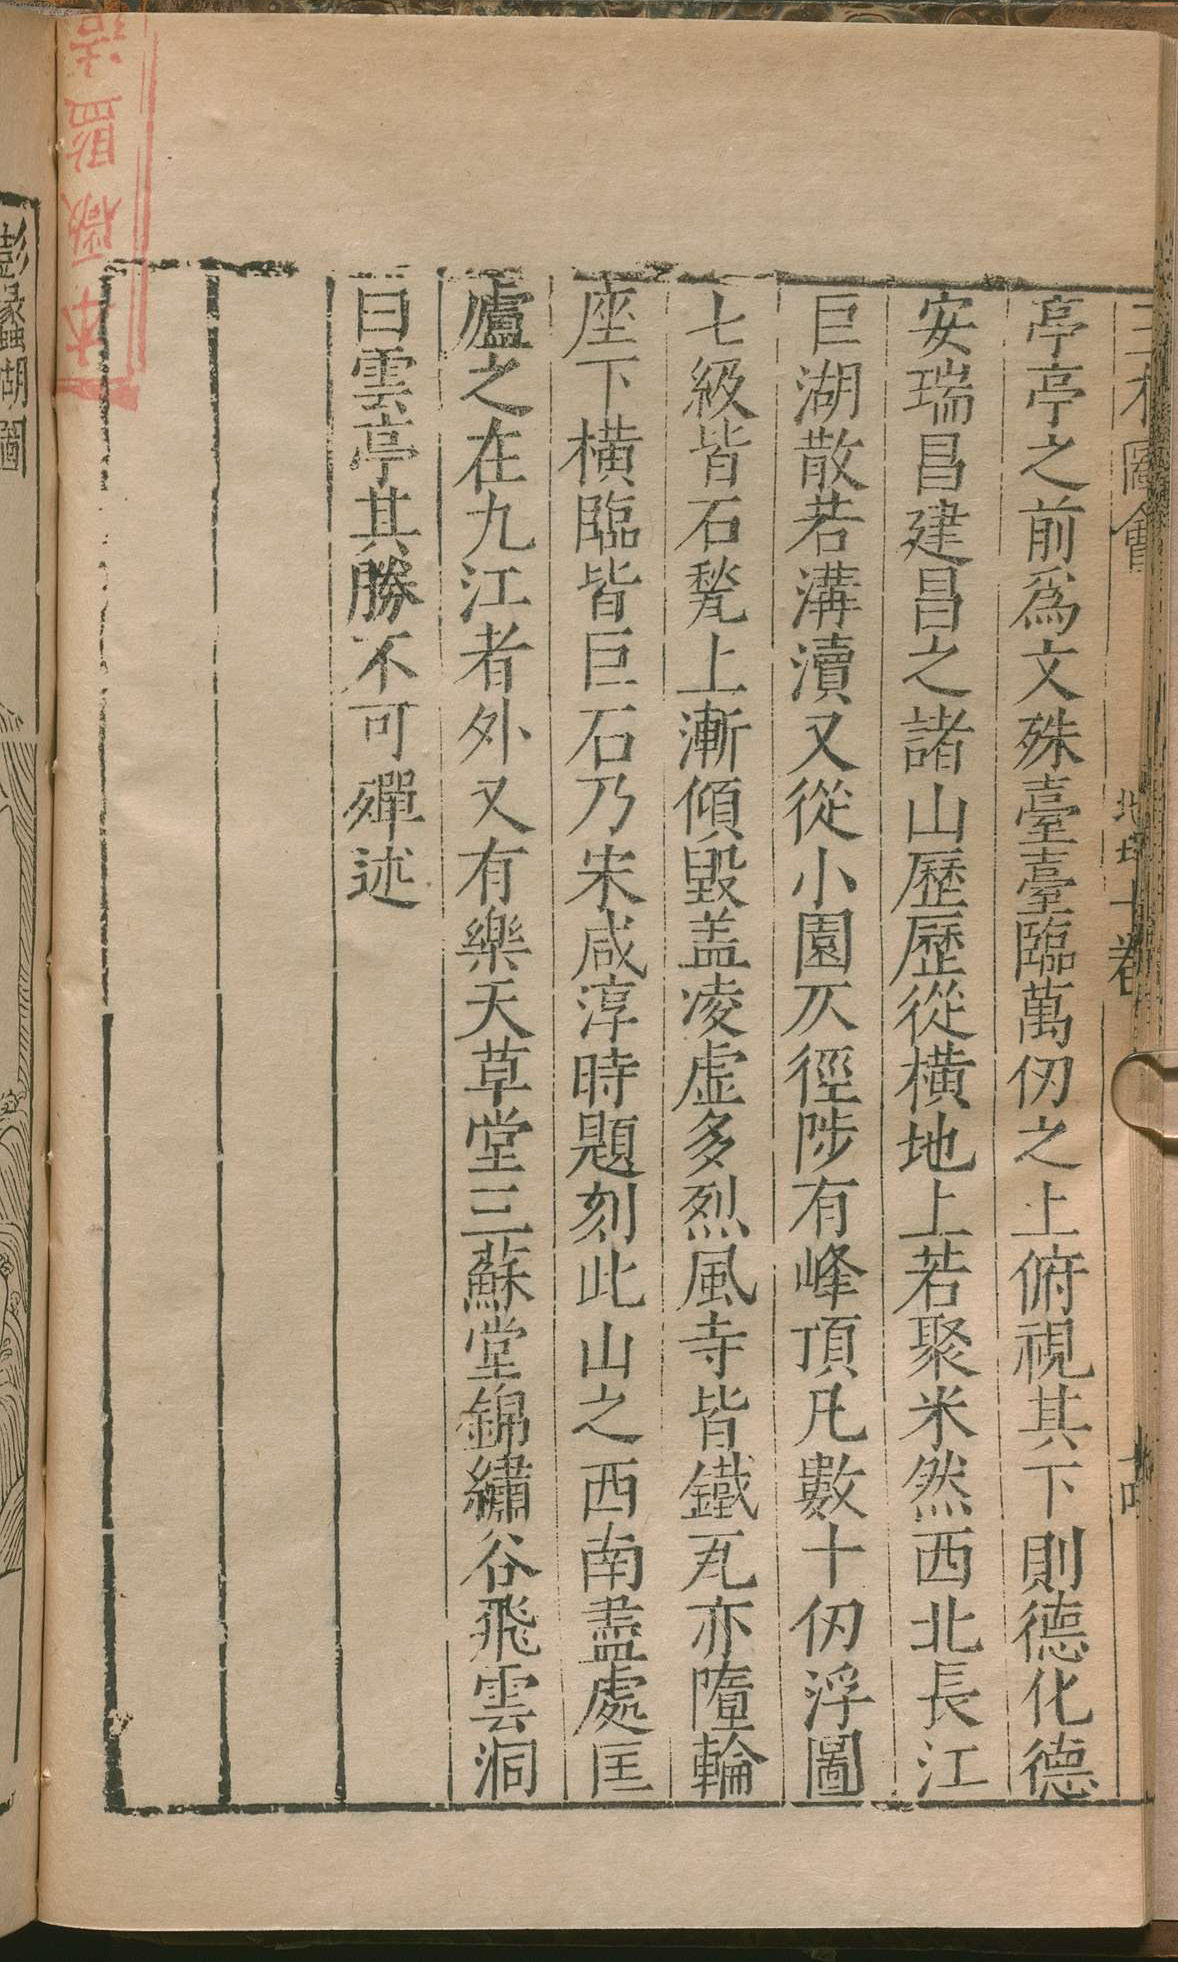 三才圖會
地理十卷
亭亭之前爲文殊臺臺臨萬仞之上俯視其下則德化德
安瑞昌建昌之諸山歷歷從橫地上若聚米然西北長江
巨湖散若溝瀆又從小園仄徑陟有峰頂凡數十仞浮圖
七級皆石甃上漸傾毀盖凌虛多烈風寺皆鐵瓦亦墮輪
座下橫臨皆巨石乃宋咸淳時題刻此山之西南盡處匡
廬之在九江者外又有樂天草堂三蘇堂錦繡谷飛雲洞
曰雲亭其勝不可殫述
彭蠡湖圖